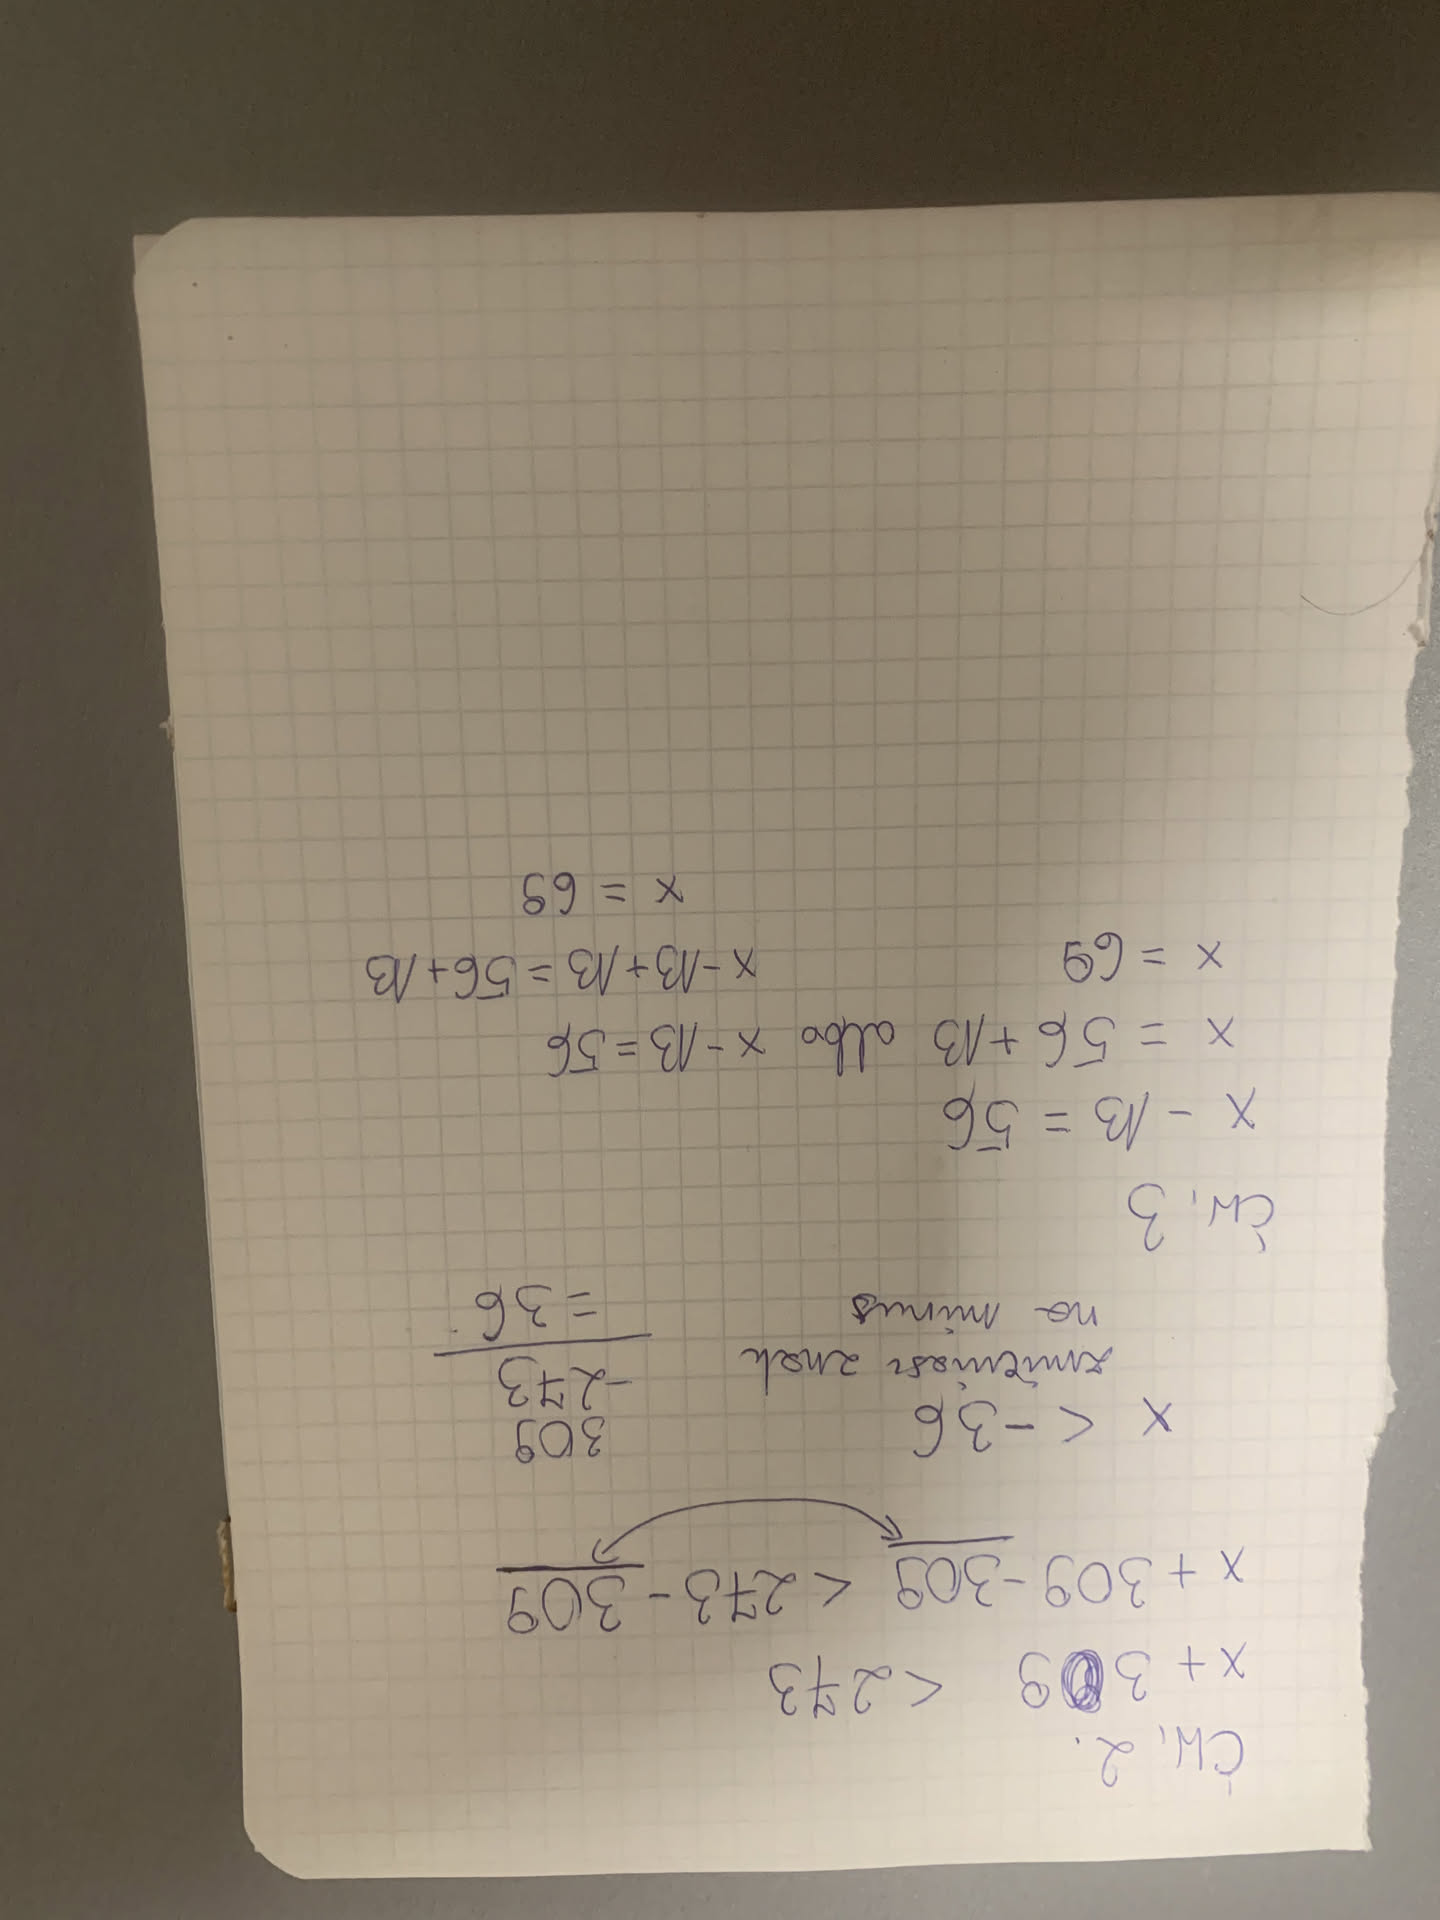 Ćw. 2.
x + 309 < 273
x + 309 - 309 < 273 - 309
x < -36
309
-273
= 36
zmieniasz znak
na minus
Ćw. 3
x - 13 = 56
x = 56 + 13 albo x - 13 = 56
x = 69
x - 13 + 13 = 56 + 13
x = 69